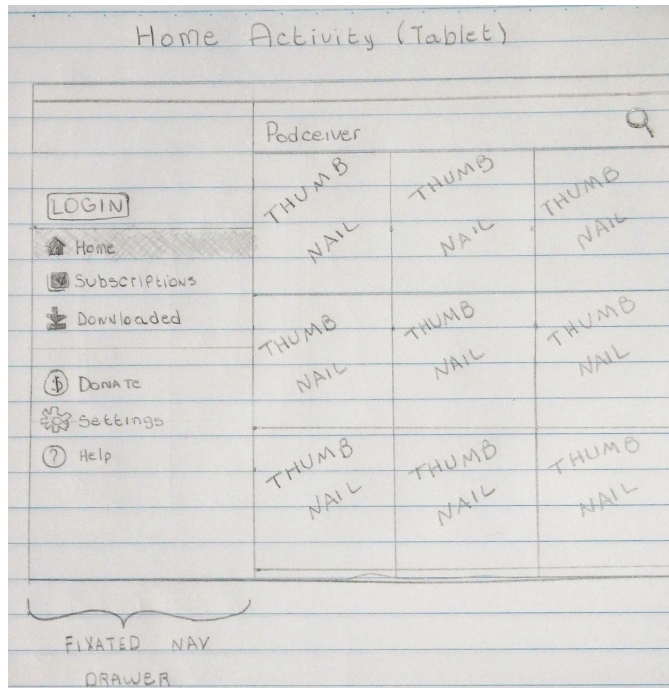 Home Activity (Tablet)
Podceiver
LOGIN
Home
Subscriptions
Downloaded
$ DONATE
Settings
? Help
THUMB NAIL
THUMB NAIL
THUMB NAIL
THUMB NAIL
THUMB NAIL
THUMB NAIL
THUMB NAIL
THUMB NAIL
THUMB NAIL
FIXATED NAV
DRAWER